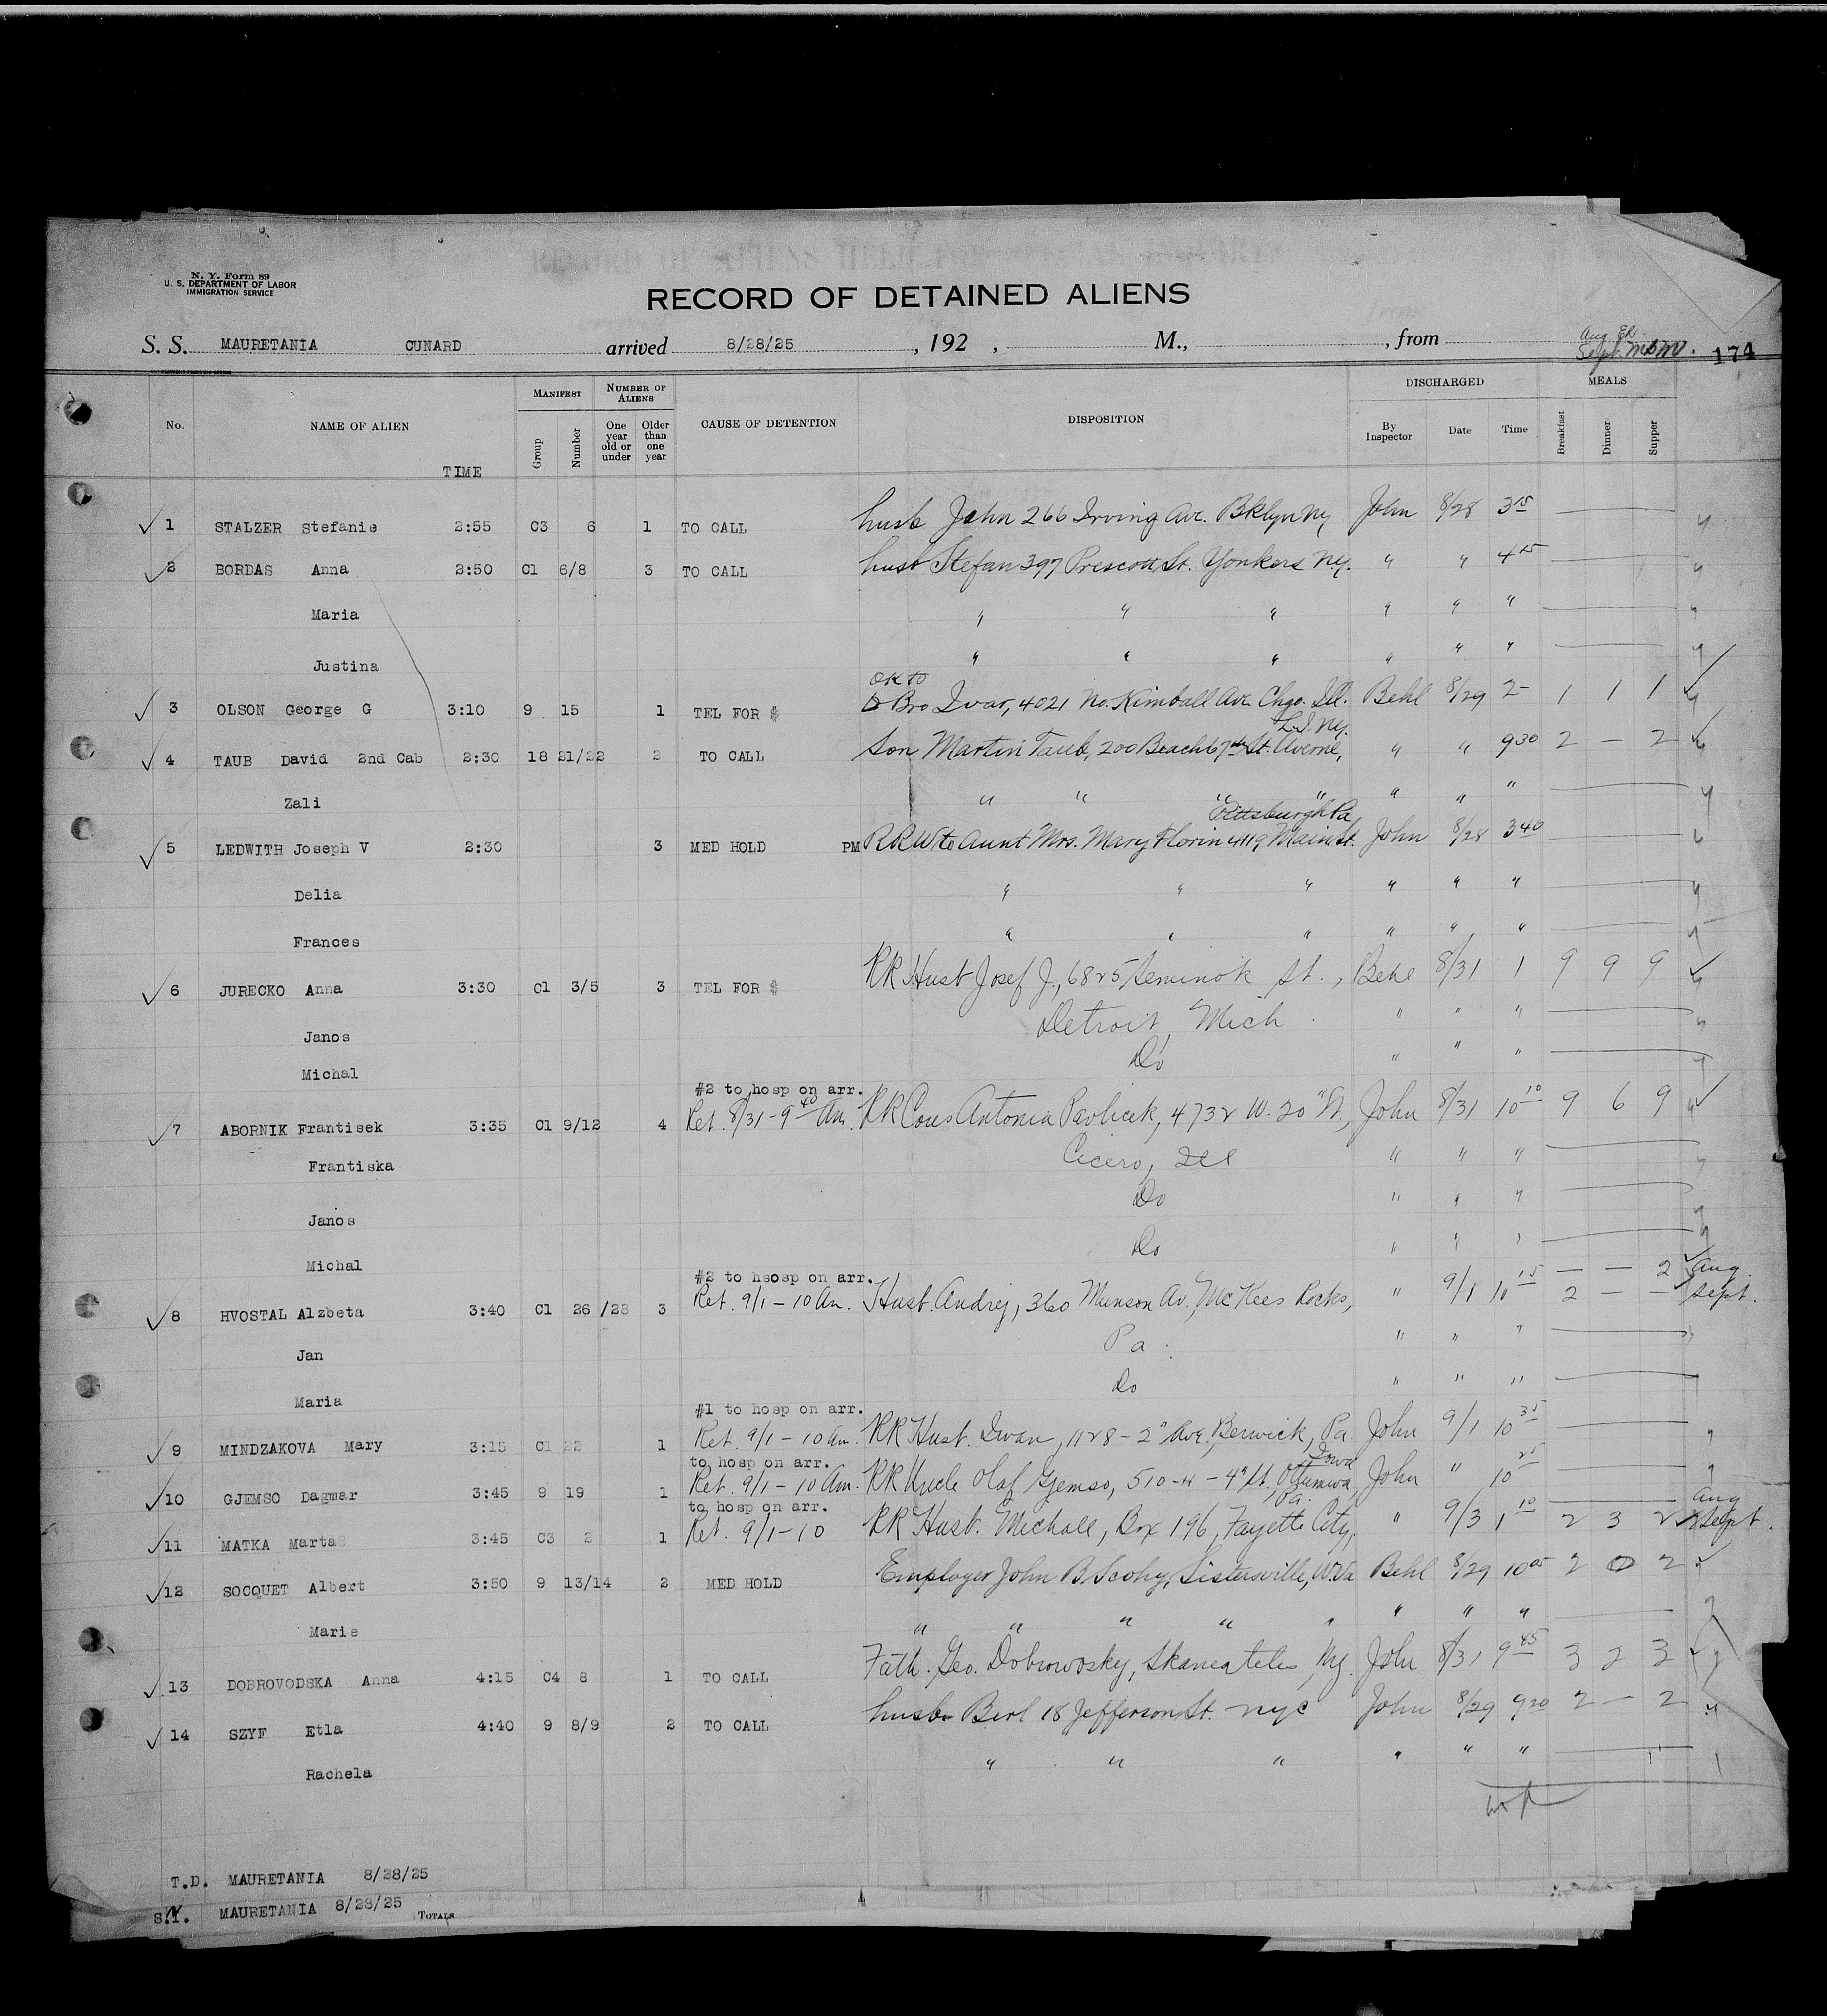 N. Y. Form 89
U. S. DEPARTMENT OF LABOR
IMMIGRATION SERVICE
RECORD OF DETAINED ALIENS
S. S. MAURETANIA CUNARD arrived 8/28/25, 192 , M., , from
Aug
Sept. 174
No. NAME OF ALIEN TIME MANIFEST Group Number NUMBER OF ALIENS One year old or under Older than one year CAUSE OF DETENTION DISPOSITION DISCHARGED By Inspector Date Time MEALS Breakfast Dinner Supper
1 STALZER Stefanie 2:55 C3 6 1 TO CALL husb John 266 Irving Av. Bklyn Ny John 8/28 3 15
2 BORDAS Anna 2:50 C1 6/8 3 TO CALL husb Stefan 397 Prescott St. Yonkers N.Y. " " 4 15
Maria " " " " " "
Justina " " " " " "
OK to
3 OLSON George G 3:10 9 15 1 TEL FOR $ Bro Ivar, 4021 No. Kimball Av. Chgo. Ill. Behl 8/29 2- 1 1 1
L.I. Ny.
4 TAUB David 2nd Cab 2:30 18 21/22 2 TO CALL Son Martin Taub, 200 Beach 67th St. Averne, " " 9 30 2 — 2
Zali " " " " " " "
Pittsburgh Pa
5 LEDWITH Joseph V 2:30 3 MED HOLD PM RRW to Aunt Mrs. Mary Florin 4119 Main St. John 8/28 3 40
Delia " " " " " "
Frances " " " " " "
6 JURECKO Anna 3:30 C1 3/5 3 TEL FOR $ RR Husb Josef J., 6825 St., Behl 8/31 1 9 9 9
Janos Detroit, Mich. " " "
Michal Do " " "
#2 to hosp on arr.
7 ABORNIK Frantisek 3:35 C1 9/12 4 Ret. 8/31 - 9 40 Am. RR Cous Antonia Pavlicek, 4732 W. 20 " St., John 8/31 10 10 9 6 9
Frantiska Cicero, Ill " " "
Janos Do " " "
Michal Do " " "
#2 to hsosp on arr. — — 2 Aug.
8 HVOSTAL Alzbeta 3:40 C1 26 /28 3 Ret. 9/1 - 10 Am. Husb. Andrej, 360 Munson Av., McKees Rocks, " 9/1 10 15 2 — — Sept.
Jan Pa. " " "
Maria Do " " "
#1 to hosp on arr.
9 MINDZAKOVA Mary 3:15 C1 22 1 Ret. 9/1 - 10 Am. RR Husb. Iwan, 1128 - 2" Ave., Berwick, Pa. John 9/1 10 35
to hosp on arr. Iowa
10 GJEMSO Dagmar 3:45 9 19 1 Ret. 9/1 - 10 Am. RR Uncle Olaf Gjemso, 510-4 - 4" St. Ottumwa, John " 10 25
to hosp on arr. Pa. Aug
11 MATKA Marta 3:45 C3 2 1 Ret. 9/1 - 10 RR Husb. Michall, Box 196, Fayette City, " 9/3 1 10 2 3 2 Sept.
12 SOCQUET Albert 3:50 9 13/14 2 MED HOLD Employer John B. Scohy, Sistersville, W.Va Behl 8/29 10 05 2 0 2
Marie " " " " " " " "
13 DOBROVODSKA Anna 4:15 C4 8 1 TO CALL Fath. Geo. Dobrowosky, Skaneateles, Ny. John 8/31 9 45 3 2 3
14 SZYF Etla 4:40 9 8/9 2 TO CALL husb Berl 18 Jefferson St. nyc John 8/29 9 20 2 — 2
Rachela " " " " " "
T.D. MAURETANIA 8/28/25
S.I. MAURETANIA 8/28/25 TOTALS